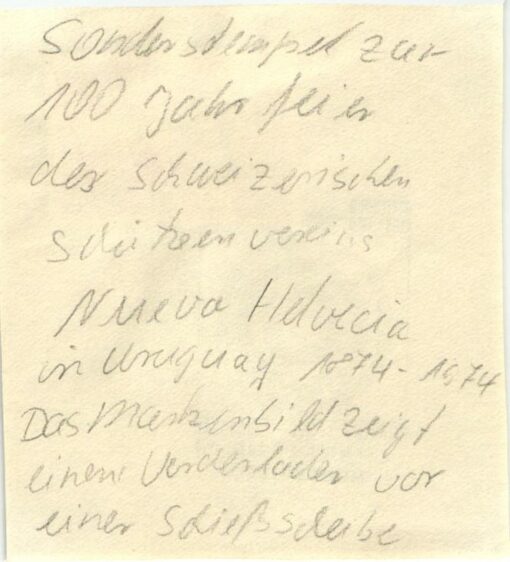 Sonderstempel zur
100 Jahrfeier
des schweizerischen
Schützenvereins
Nueva Helvecia
in Uruguay 1874-1974
Das Markenbild zeigt
einen Vorderlader vor
einer Schießscheibe